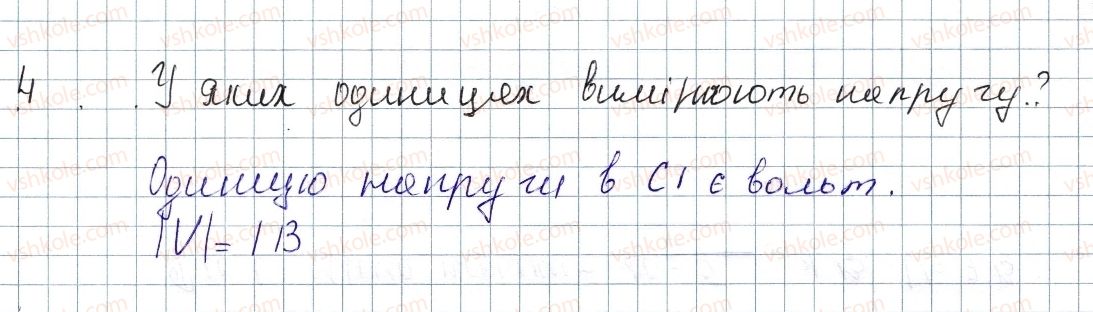 4. У яких одиницях вимірюють напругу?
Одиницю напруги в СІ є вольт.
|U| = 1 В